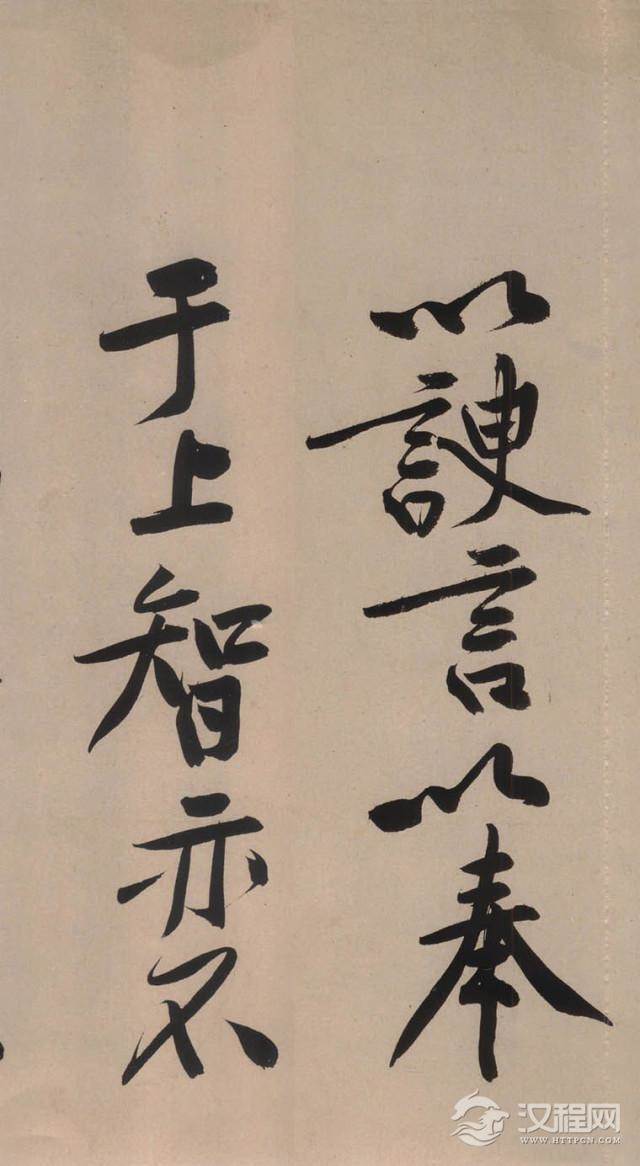 以諛言以奉
于上智亦不
汉程网
WWW.HTTPCN.COM